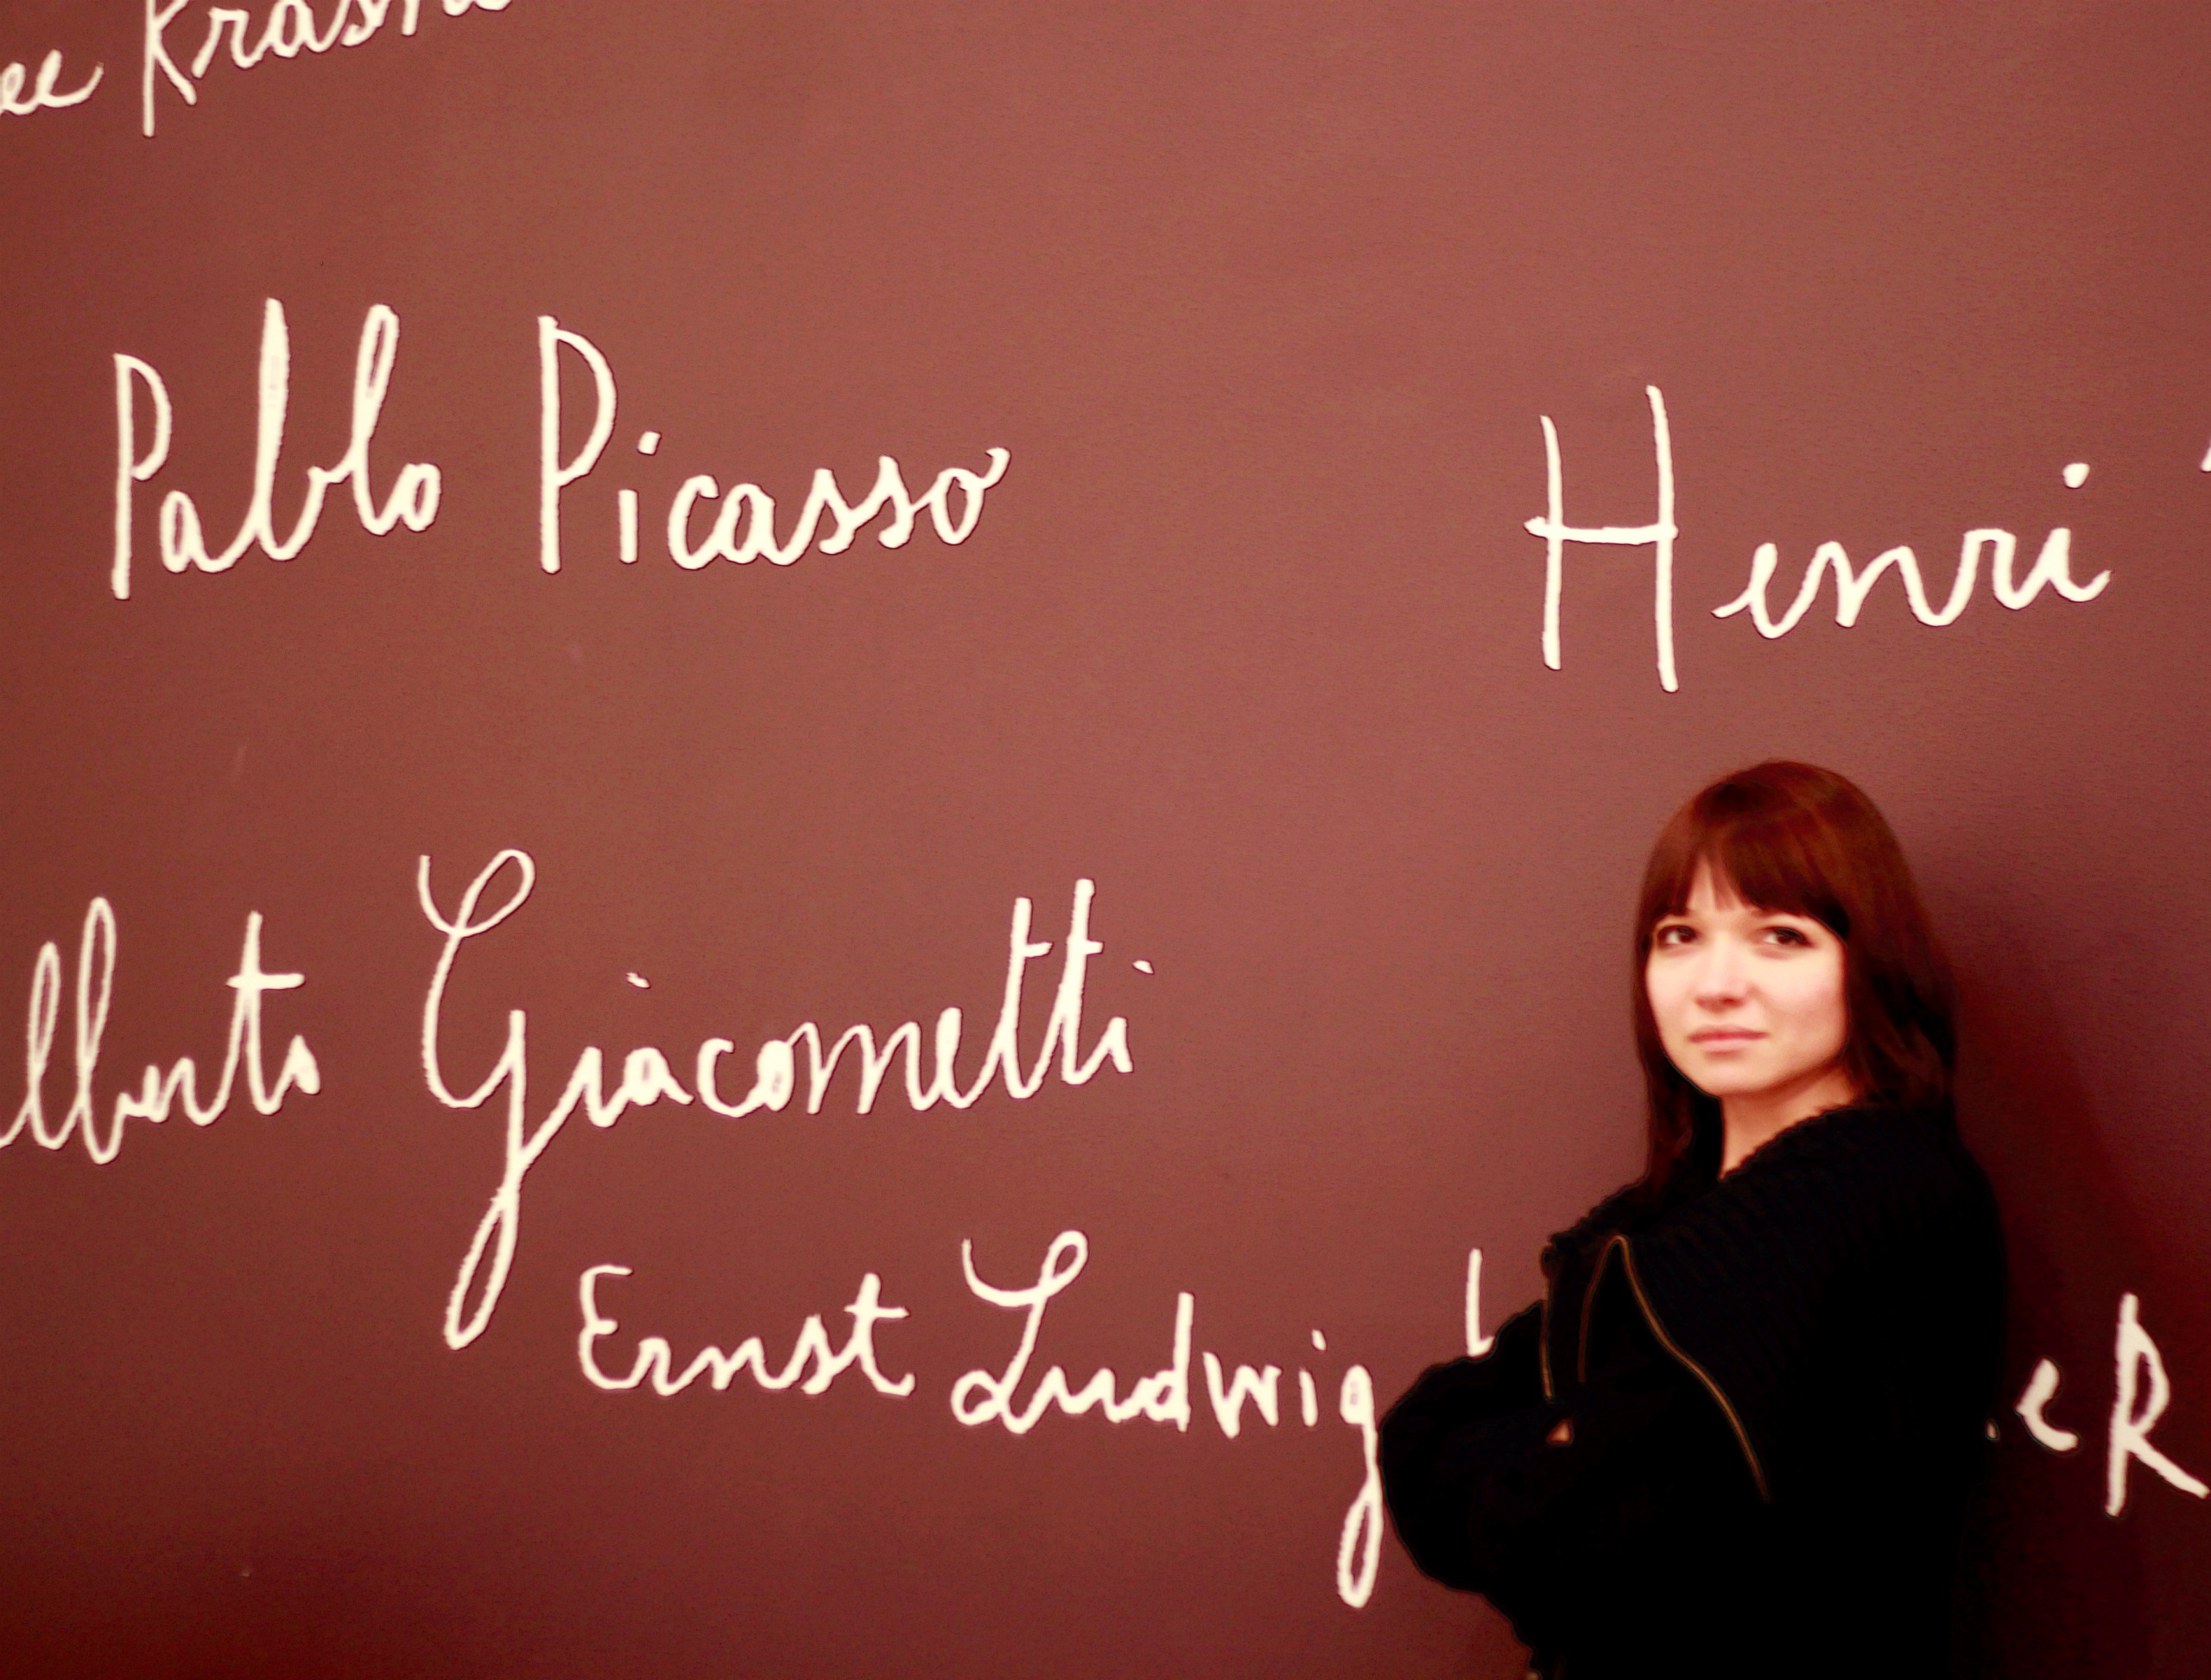 ee Krasn
Pablo Picasso
Henri
lberto Giacometti
Ernst Ludwig
eR